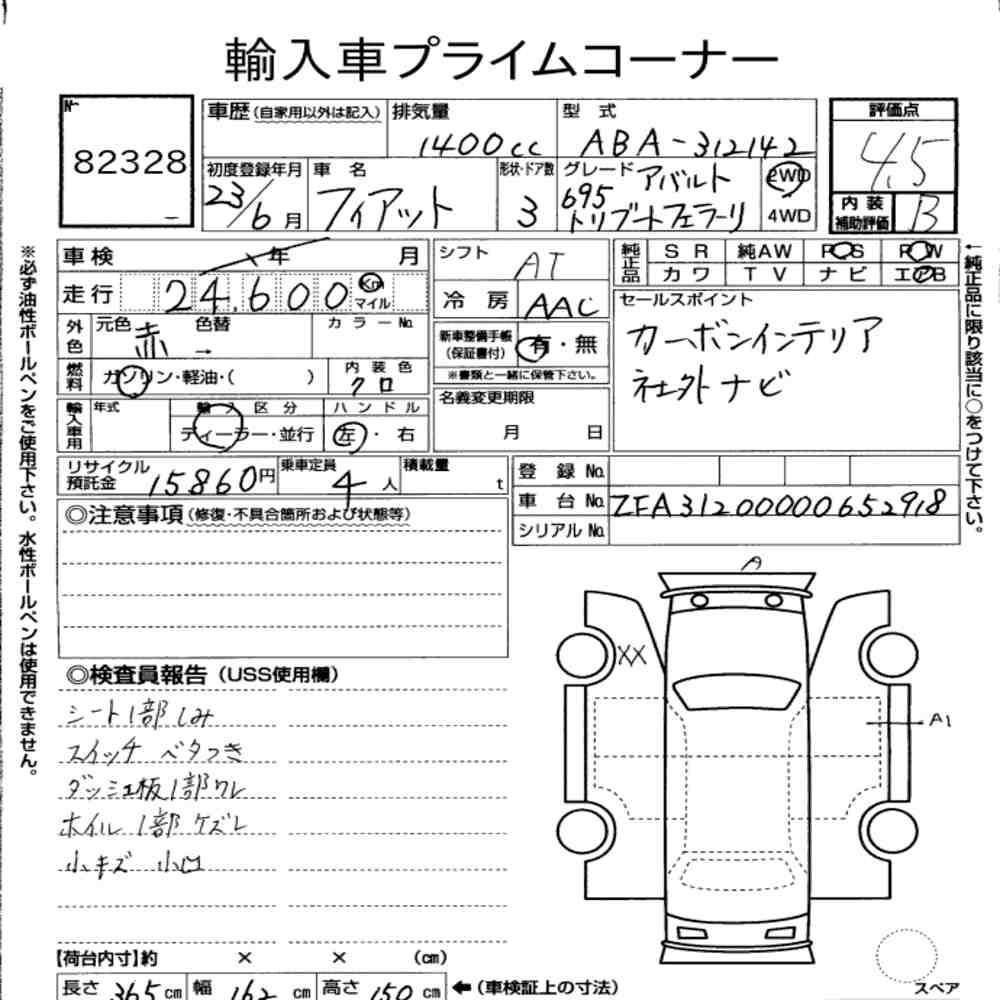 輸入車プライムコーナー
No.
82328
車歴(自家用以外は記入)
排気量
1400cc
型 式
ABA-312142
評価点
4.5
初度登録年月
23/6月
車 名
フィアット
形状・ドア数
3
グレード
アバルト
695
トリブートフェラーリ
2WD
4WD
内 装
補助評価
B
車検 年 月
走行 24,600 Km
マイル
シフト
AT
冷 房
AAC
純正品
SR 純AW P・S P・W
カワ TV ナビ エアB
外色
元色 赤
色替 →
カラーNo.
新車整備手帳
(保証書付)
有・無
※書類と一緒に保管下さい。
セールスポイント
カーボンインテリア
社外ナビ
燃料
ガソリン・軽油・( )
内装色
クロ
輸入車用
年式
輸入区分
ディーラー・並行
ハンドル
左・右
名義変更期限
月 日
リサイクル
預託金
15860円
乗車定員
4人
積載量
t
登 録 No.
車 台 No.
ZFA31200000652918
シリアル No.
◎注意事項(修復・不具合箇所および状態等)
◎検査員報告(USS使用欄)
シート1部しみ
スイッチ ベタつき
ダッシュ板1部ワレ
ホイル1部ケズレ
小キズ 小凹
A
XX
A1
【荷台内寸】約 × × (cm)
長さ 365 cm
幅 162 cm
高さ 150 cm
←(車検証上の寸法)
スペア
※必ず油性ボールペンをご使用下さい。水性ボールペンは使用できません。
←純正品に限り該当に○をつけて下さい。